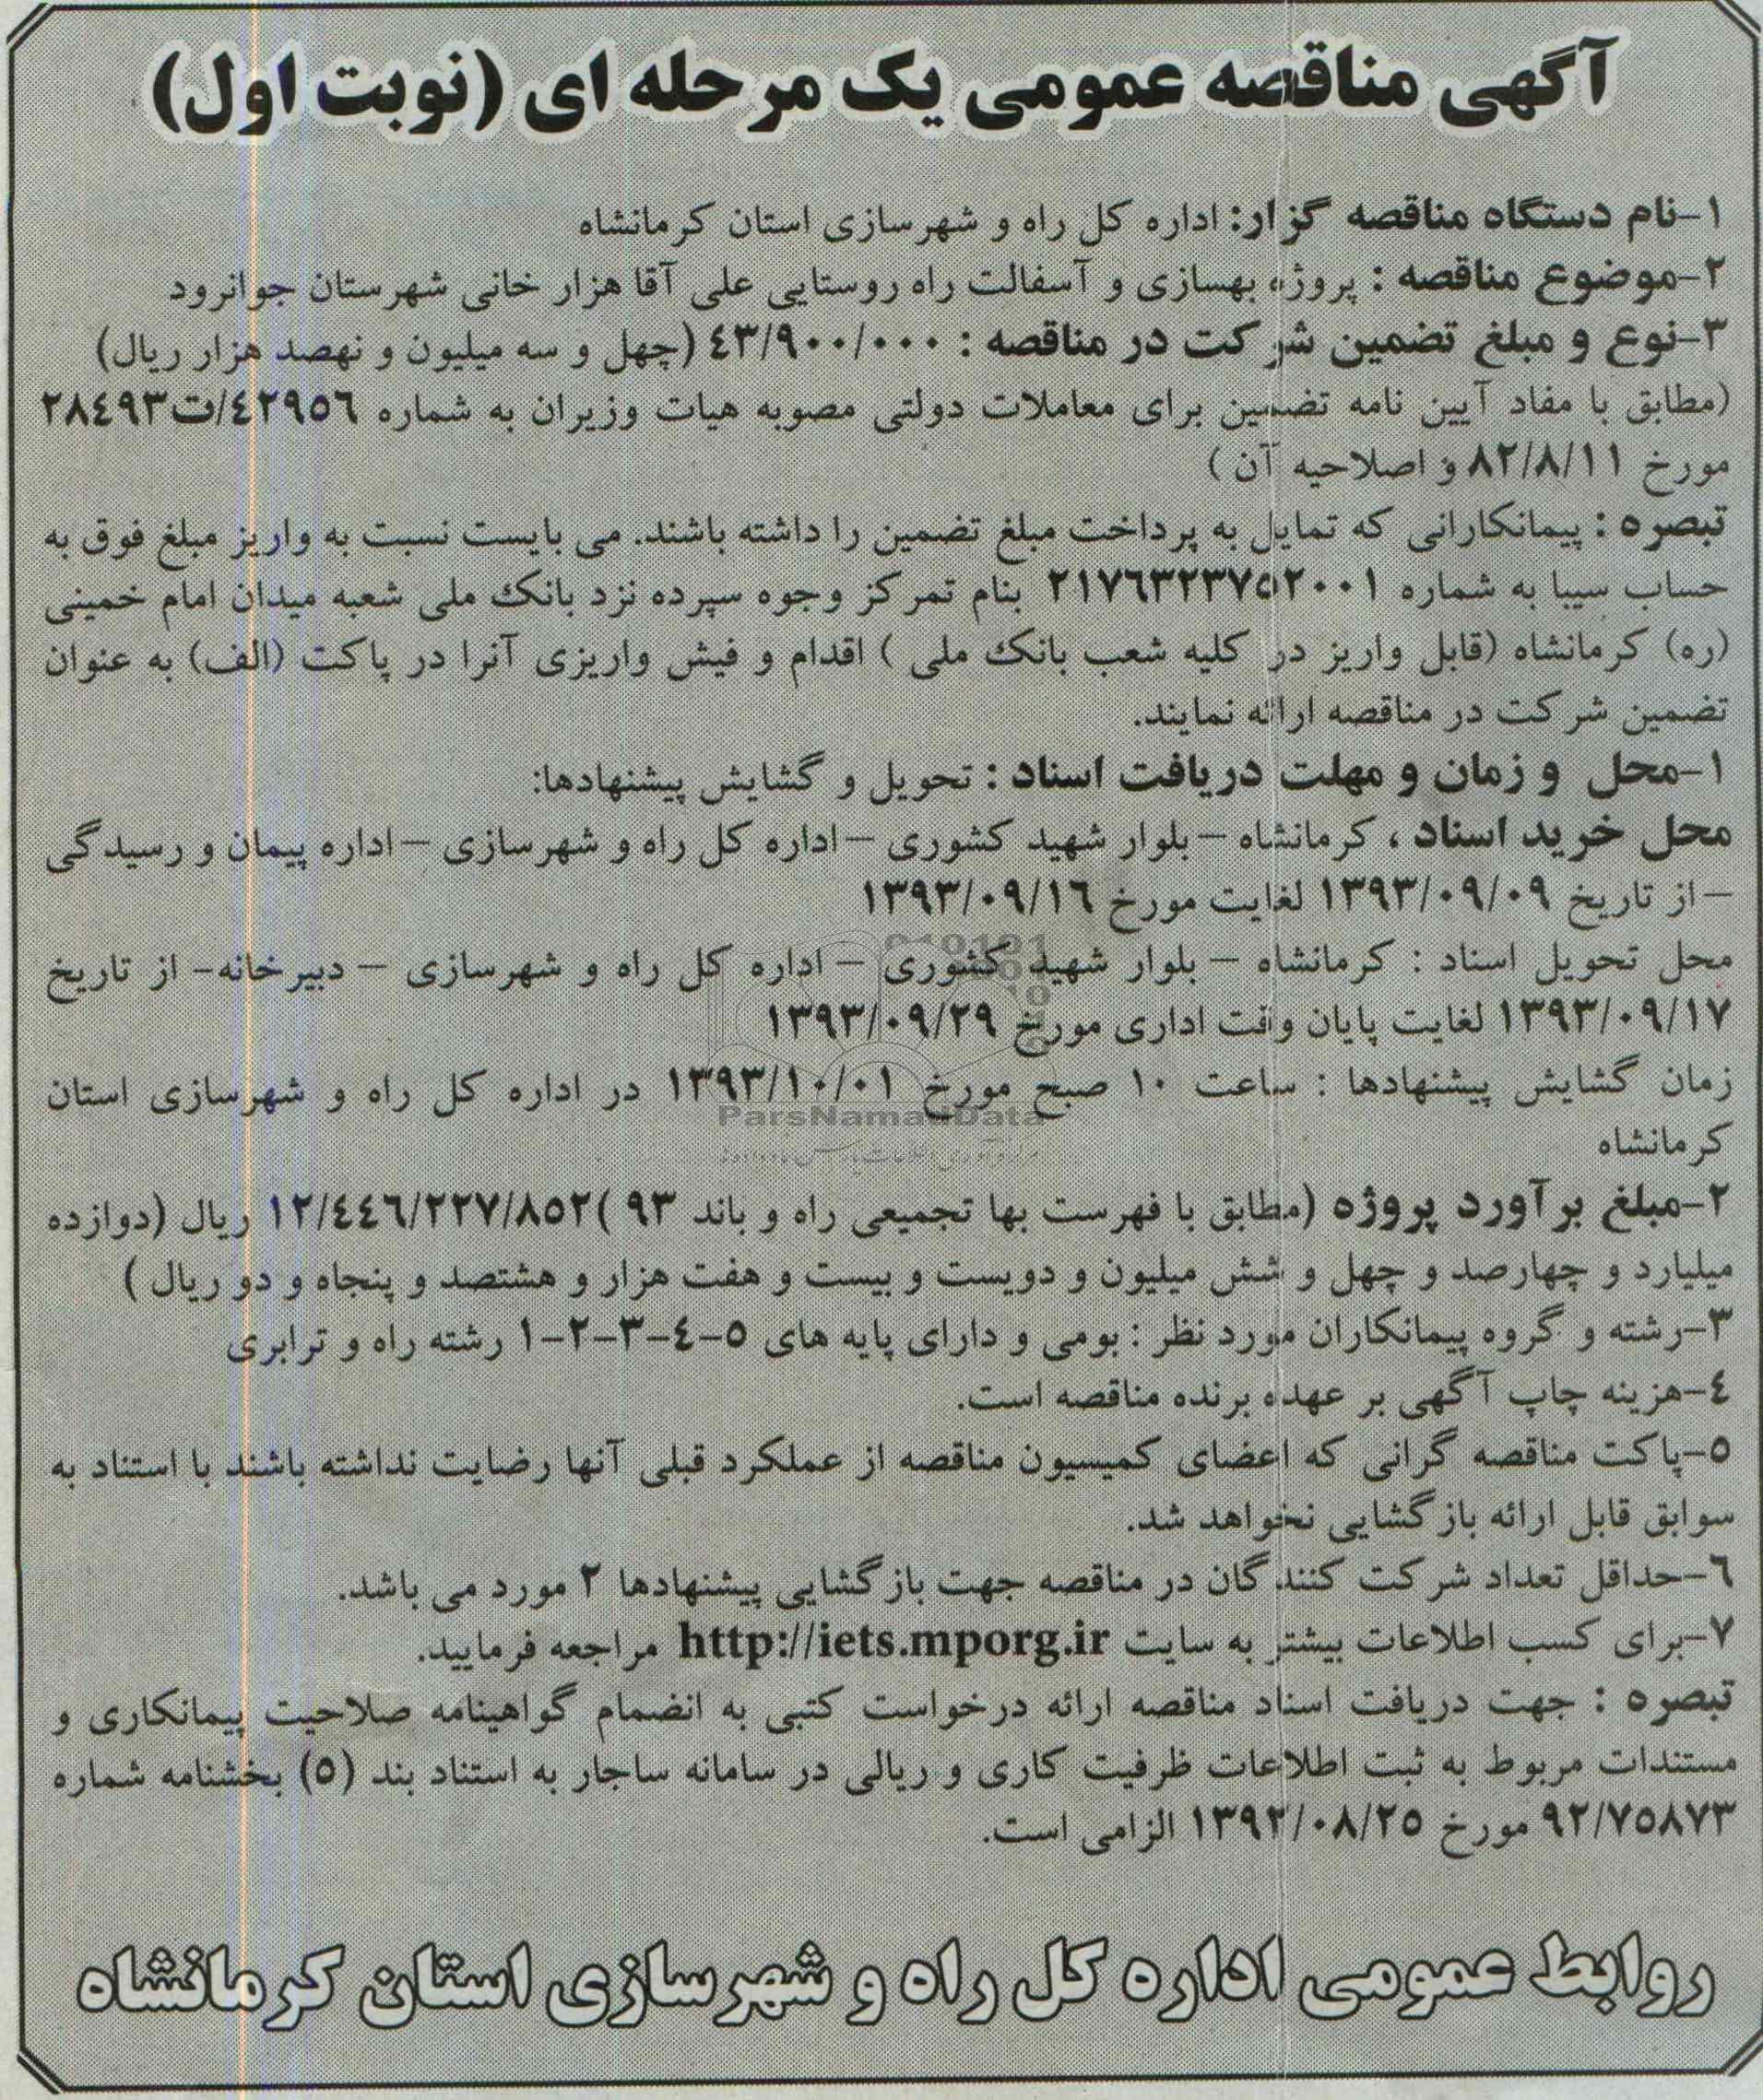 آگهی مناقصه عمومی یک مرحله ای (نوبت اول)
۱-نام دستگاه مناقصه گزار: اداره کل راه و شهرسازی استان کرمانشاه
۲-موضوع مناقصه : پروژه بهسازی و آسفالت راه روستایی علی آقا هزار خانی شهرستان جوانرود
۳-نوع و مبلغ تضمین شرکت در مناقصه : ٤۳/۹۰۰/۰۰۰ (چهل و سه میلیون و نهصد هزار ریال)
(مطابق با مفاد آیین نامه تضمین برای معاملات دولتی مصوبه هیات وزیران به شماره ٤۲۹٥٦/ت۲۸٤۹۳
مورخ ۸۲/۸/۱۱ و اصلاحیه آن )
تبصره : پیمانکارانی که تمایل به پرداخت مبلغ تضمین را داشته باشند. می بایست نسبت به واریز مبلغ فوق به
حساب سیبا به شماره ۲۱۷٦۳۲۳۷٥۲۰۰۱ بنام تمرکز وجوه سپرده نزد بانک ملی شعبه میدان امام خمینی
(ره) کرمانشاه (قابل واریز در کلیه شعب بانک ملی ) اقدام و فیش واریزی آنرا در پاکت (الف) به عنوان
تضمین شرکت در مناقصه ارائه نمایند.
۱-محل و زمان و مهلت دریافت اسناد : تحویل و گشایش پیشنهادها:
محل خرید اسناد ، کرمانشاه – بلوار شهید کشوری – اداره کل راه و شهرسازی – اداره پیمان و رسیدگی
– از تاریخ ۱۳۹۳/۰۹/۰۹ لغایت مورخ ۱۳۹۳/۰۹/۱٦
محل تحویل اسناد : کرمانشاه – بلوار شهید کشوری – اداره کل راه و شهرسازی – دبیرخانه- از تاریخ
۱۳۹۳/۰۹/۱۷ لغایت پایان وقت اداری مورخ ۱۳۹۳/۰۹/۲۹
زمان گشایش پیشنهادها : ساعت ۱۰ صبح مورخ ۱۳۹۳/۱۰/۰۱ در اداره کل راه و شهرسازی استان
ParsNamadData
کرمانشاه
۲-مبلغ برآورد پروژه (مطابق با فهرست بها تجمیعی راه و باند ۹۳ )۱۲/٤٤٦/۲۲۷/۸٥۲ ریال (دوازده
میلیارد و چهارصد و چهل و شش میلیون و دویست و بیست و هفت هزار و هشتصد و پنجاه و دو ریال )
۳-رشته و گروه پیمانکاران مورد نظر : بومی و دارای پایه های ٥-٤-۳-۲-۱ رشته راه و ترابری
٤-هزینه چاپ آگهی بر عهده برنده مناقصه است.
٥-پاکت مناقصه گرانی که اعضای کمیسیون مناقصه از عملکرد قبلی آنها رضایت نداشته باشند با استناد به
سوابق قابل ارائه بازگشایی نخواهد شد.
٦-حداقل تعداد شرکت کنندگان در مناقصه جهت بازگشایی پیشنهادها ۲ مورد می باشد.
۷-برای کسب اطلاعات بیشتر به سایت http://iets.mporg.ir مراجعه فرمایید.
تبصره : جهت دریافت اسناد مناقصه ارائه درخواست کتبی به انضمام گواهینامه صلاحیت پیمانکاری و
مستندات مربوط به ثبت اطلاعات ظرفیت کاری و ریالی در سامانه ساجار به استناد بند (٥) بخشنامه شماره
۹۲/۷٥۸۷۳ مورخ ۱۳۹۲/۰۸/۲٥ الزامی است.
روابط عمومی اداره کل راه و شهرسازی استان کرمانشاه